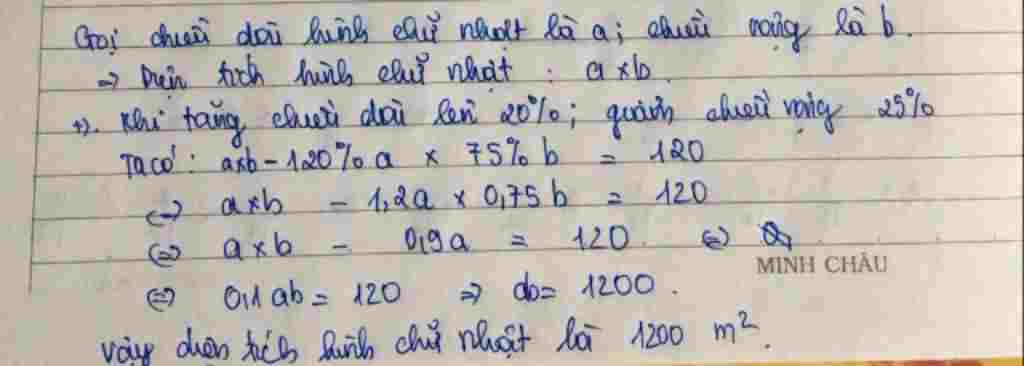 Gọi chiều dài hình chữ nhật là a; chiều rộng là b.
=> Diện tích hình chữ nhật : a x b.
+). Khi tăng chiều dài lên 20%; giảm chiều rộng 25%
Ta có: axb - 120% a x 75% b = 120
<=> a x b - 1,2a x 0,75 b = 120
<=> a x b - 0,9a = 120 <=>
MINH CHÂU
<=> 0,1 ab = 120 => ab = 1200.
Vậy diện tích hình chữ nhật là 1200 m².